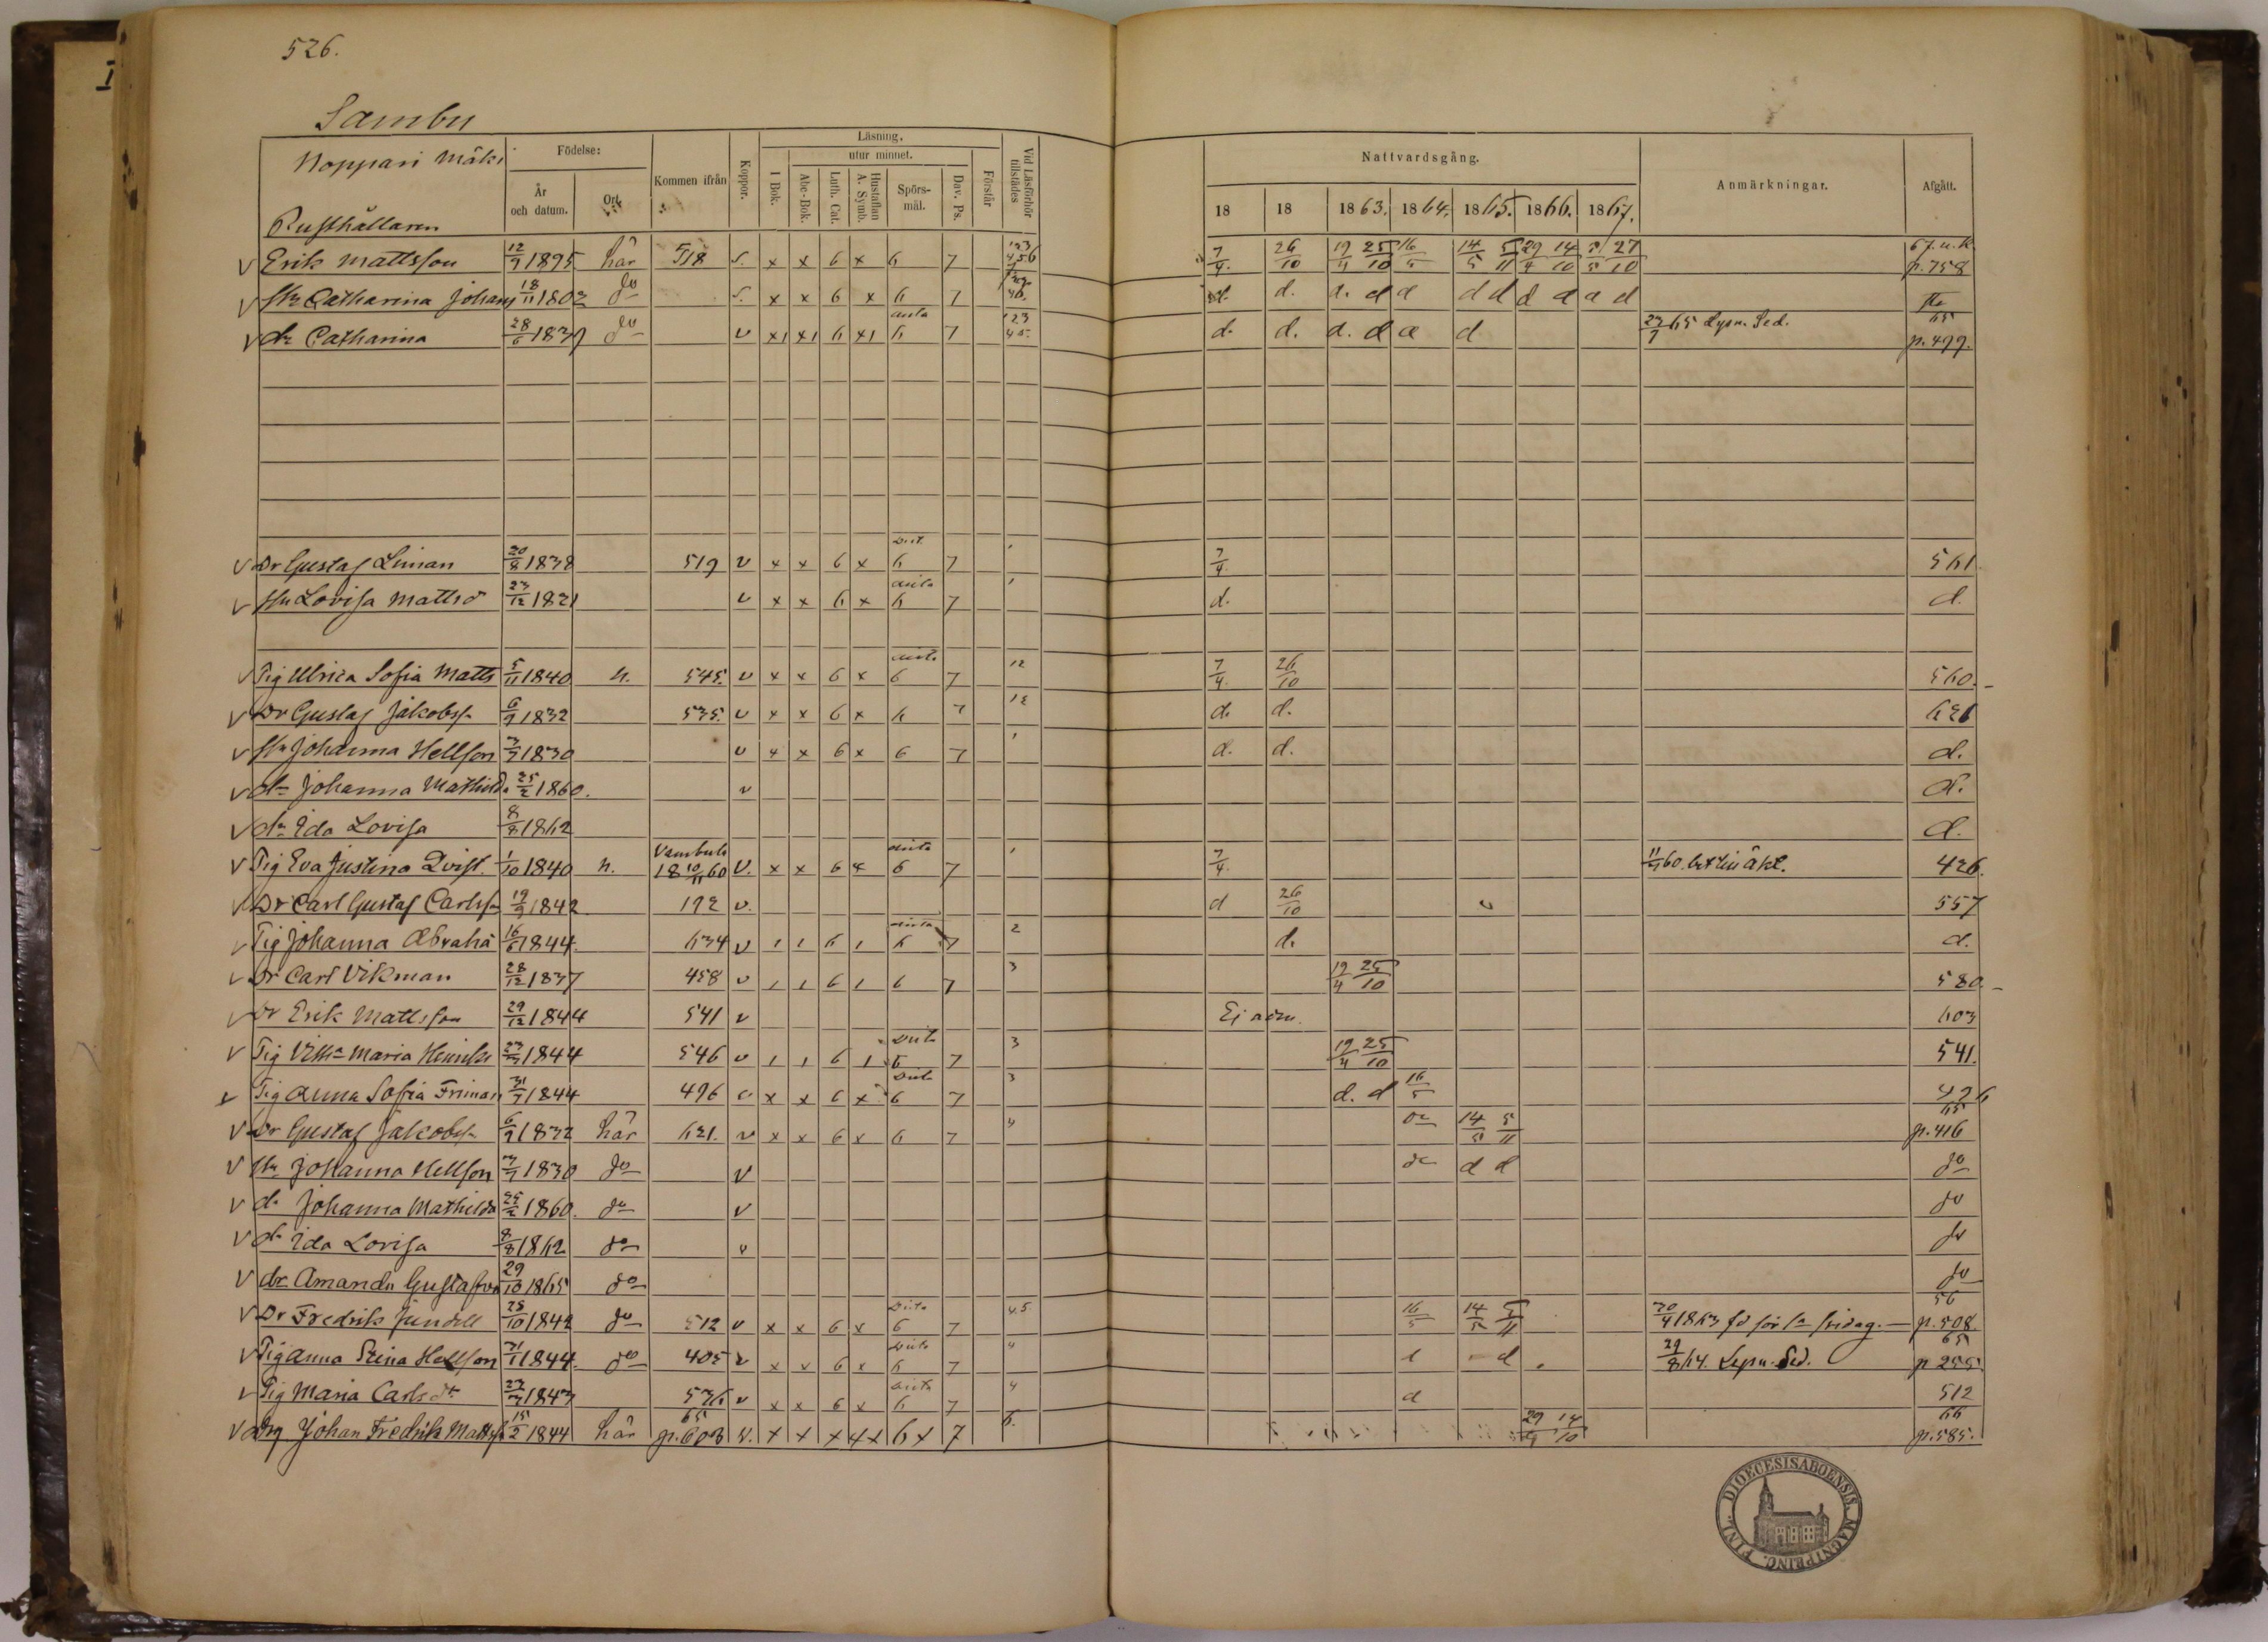 526.
Sambu
Noppari Mäki
Födelse:
År och datum.
Ort.
Kommen ifrån
Koppor.
Läsning.
utur minnet.
I Bok.
Abc-Bok.
Luth. Cat.
Hustaflan A. Symb.
Spörsmål.
Dav. Ps.
Förstår
Vid Läsförhör tillstädes
Nattvardsgång.
18 18 1863. 1864. 1865. 1866. 1867.
Anmärkningar.
Afgått.
Rusthållaren
v Erik Mattsson 12/9 1895 här 518 s. x x 6 x 6 7 7/4. 26/10 19/4 25/10 16/5 14/5 5/11 29/4 14/10 5/5 27/10 p. 758
v Catharina Johans 18/11 1802 do s. x x 6 x 6 7 d. d. d. d d d d d d d d
v dr Catharina 28/6 1839 do v x1 x1 6 x1 6 7 d. d. d. d d d 65 p. 499.
v Dr Gustaf Liman 20/8 1838 519 v x x 6 x 6 7 7/4 561
v Hu Lovisa Mattsd 23/12 1821 v x x 6 x 6 7 d. d.
v Pig Ulrica Sofia Matts 5/11 1840 h. 545. v x x 6 x 6 7 12 7/4. 26/10 560.
v Dr Gustaf Jakobss 6/9 1832 535. v x x 6 x 6 7 12 d. d. 621
v Hu Johanna Hellson 3/7 1830 v x x 6 x 6 7 d. d. d.
v dr Johanna Mathilda 25/2 1860. v d.
v dr Ida Lovisa 8/8 1862 d.
v Pig Eva Justina Qvist. 1/10 1840 h. Vambula 18 10/11 60 v. x x 6 x 6 7 7/4. 11/4 60. äkt. 426.
v Dr Carl Gustaf Carlss 19/9 1842 192 v. d 26/10 v 557
v Pig Johanna Abraha 16/6 1844. 634 v 1 1 6 1 6 7 2 d. d.
v Dr Carl Vikman 28/12 1837 458 v 1 1 6 1 6 7 3 19/4 25/10 580.
v Dr Erik Mattsson 29/12 1844 541 v Ej adm. 603
v Pig Vilh:a Maria Henriks 1844 546 v 1 1 6 1 6 7 3 19/4 25/10 541.
v Pig Anna Sofia Friman 31/7 1844 496 v x x 6 x 6 7 3 d. d 16/5
v Dr Gustaf Jakobss 6/9 1832 här 621. v x x 6 x 6 7 4 do 14/5 5/11 65 p. 416
v Hu Johanna Hellson 3/7 1830 do v do d d do
v dr Johanna Mathilda 25/2 1860. do v do
v dr Ida Lovisa 8/8 1862 do v do
v dr Amanda Gustafva 29/10 1865 do do
v Dr Fredrik Jundell 28/10 1842 do 512 v x x 6 x 6 7 4.5 16/5 14/5 5/11 p. 508
v Pig Anna Stina Hellson 1844. do 405 v x x 6 x 6 7 4 d 29/8 64. Lysn. Sed. 65 p 255.
v Pig Maria Carlsdr 1843 536 v x x 6 x 6 7 4 d 512
v Drg Johan Fredrik Mattss 15/2 1844 här 65 p. 603 v. x x x 4 x 6 x 7 6. 29/4 14/10 66 p. 585.
DIOECESIS ABOENSIS. MAGNI PRINC. FINL.